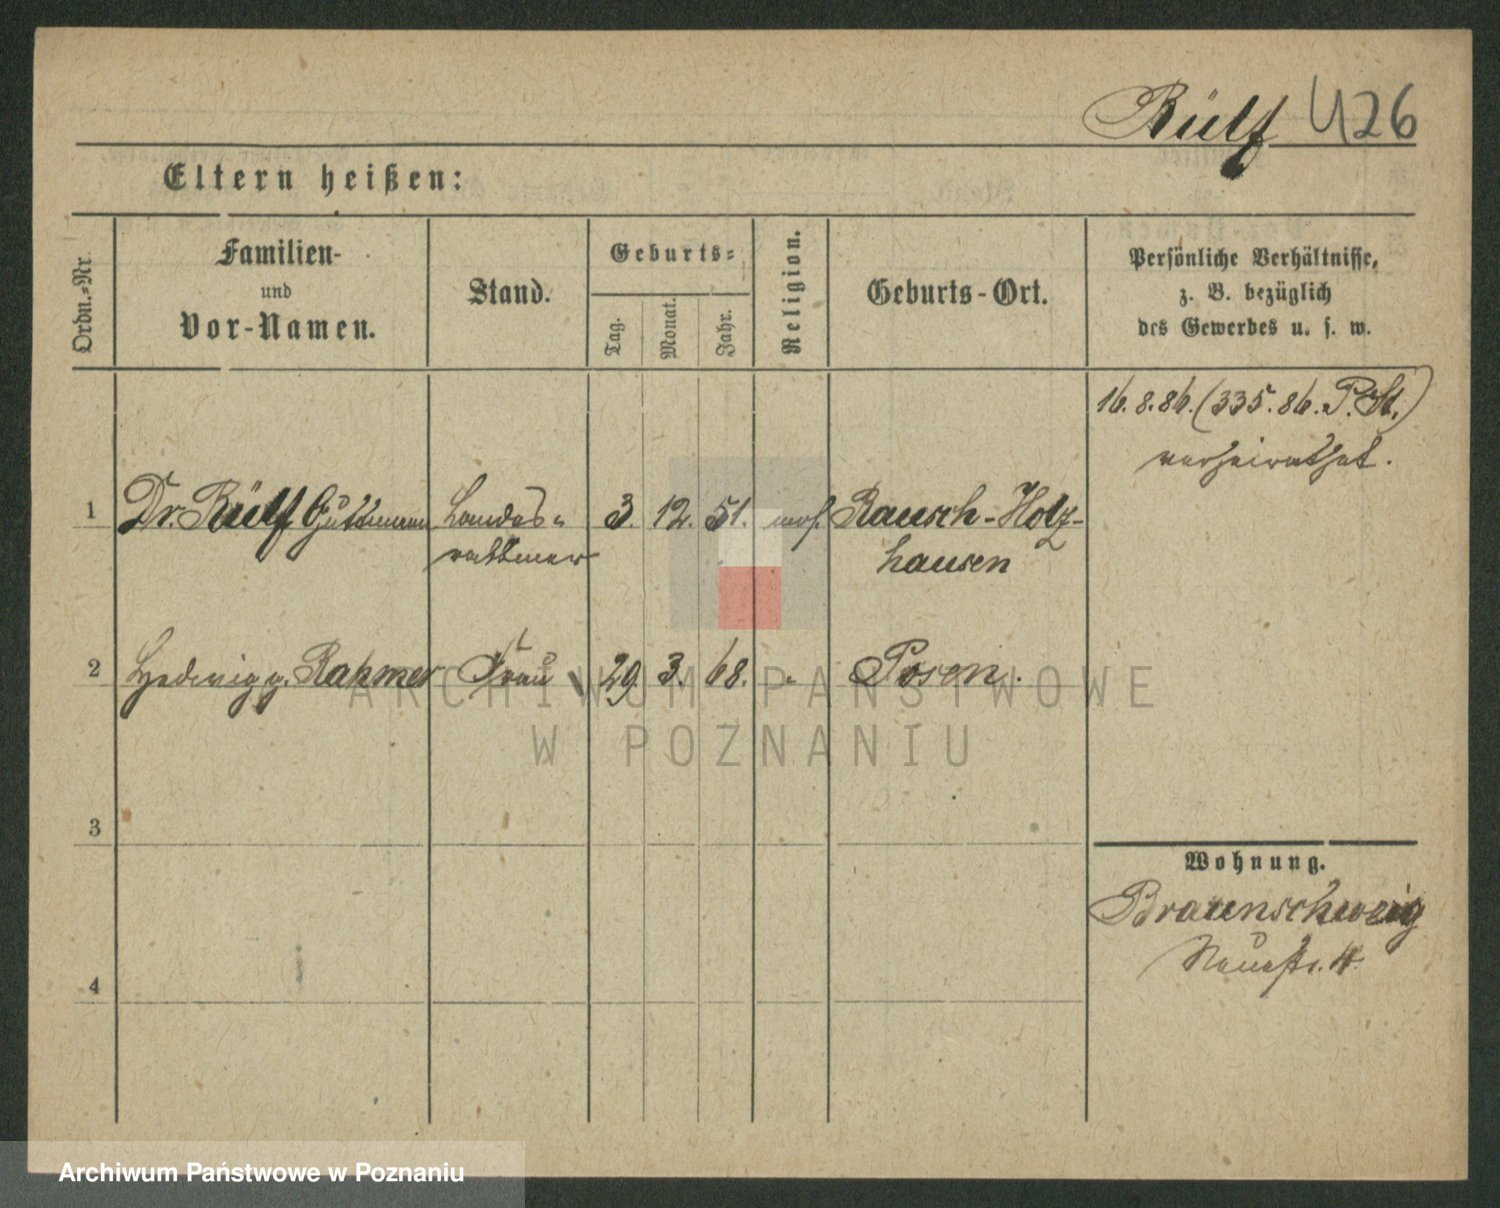 Rülf 426
Eltern heißen:
Ordn.=Nr.
Familien-
und
Vor-Namen.
Stand.
Geburts=
Tag.
Monat.
Jahr.
Religion.
Geburts-Ort.
Persönliche Verhältnisse,
z. B. bezüglich
des Gewerbes u. s. w.
16.8.86. (335.86. P. St.)
verheirathet.
1 Dr. Rülf Guttmann Landes= 3. 12. 51. mos. Rausch-Holz-
rabbiner hausen
2 Hedwig g. Rahmer Frau 29. 3. 68. " Posen.
ARCHIWUM PAŃSTWOWE
W POZNANIU
3
Wohnung.
Braunschweig
Neuestr. 4.
4
Archiwum Państwowe w Poznaniu